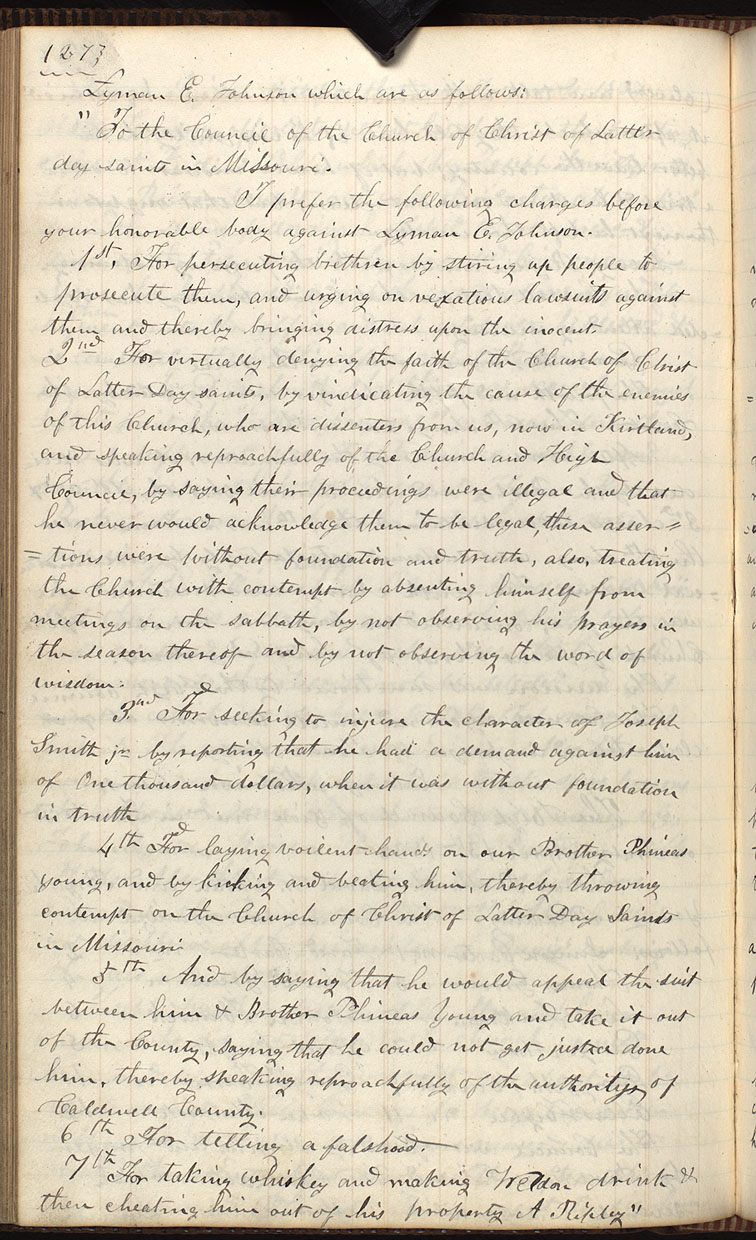 1273
Lyman E. Johnson which are as follows:
"To the Council of the Church of Christ of Latter
day saints in Missouri.
I prefer the following charges before
your honorable body against Lyman E. Johnson.
1st. For persecuting brethren by stiring up people to
prosecute them, and urging on vexatious lawsuits against
them and thereby bringing distress upon the inocent
2nd For virtually denying the faith of the Church of Christ
of Latter Day saints, by vindicating the cause of the enemies
of this Church, who are dissenters from us, now in Kirtland,
and speaking reproachfully of the Church and High
Council, by saying their proceedings were illegal and that
he never would acknowledge them to be legal, these asser=
=tions were without foundation and truth, also, treating
the Church with contempt by absenting himself from
meetings on the sabbath, by not observing his prayers in
the season thereof and by not observing the word of
wisdom.
3rd For seeking to injure the character of Joseph
Smith jr by reporting that he had a demand against him
of One thousand dollars, when it was without foundation
in truth
4th For laying voilent hands on our Brother Phineas
young, and by kicking and beating him, thereby throwing
contempt on the Church of Christ of Latter Day Saints
in Missouri
5th And by saying that he would appeal the suit
between him & Brother Phineas Young and take it out
of the County, saying that he could not get justice done
him, thereby speaking reproachfully of the authoritys of
Caldwell County.
6th For telling a falshood.
7th For taking whiskey and making Weldon drink &
then cheating him out of his property A Ripley"